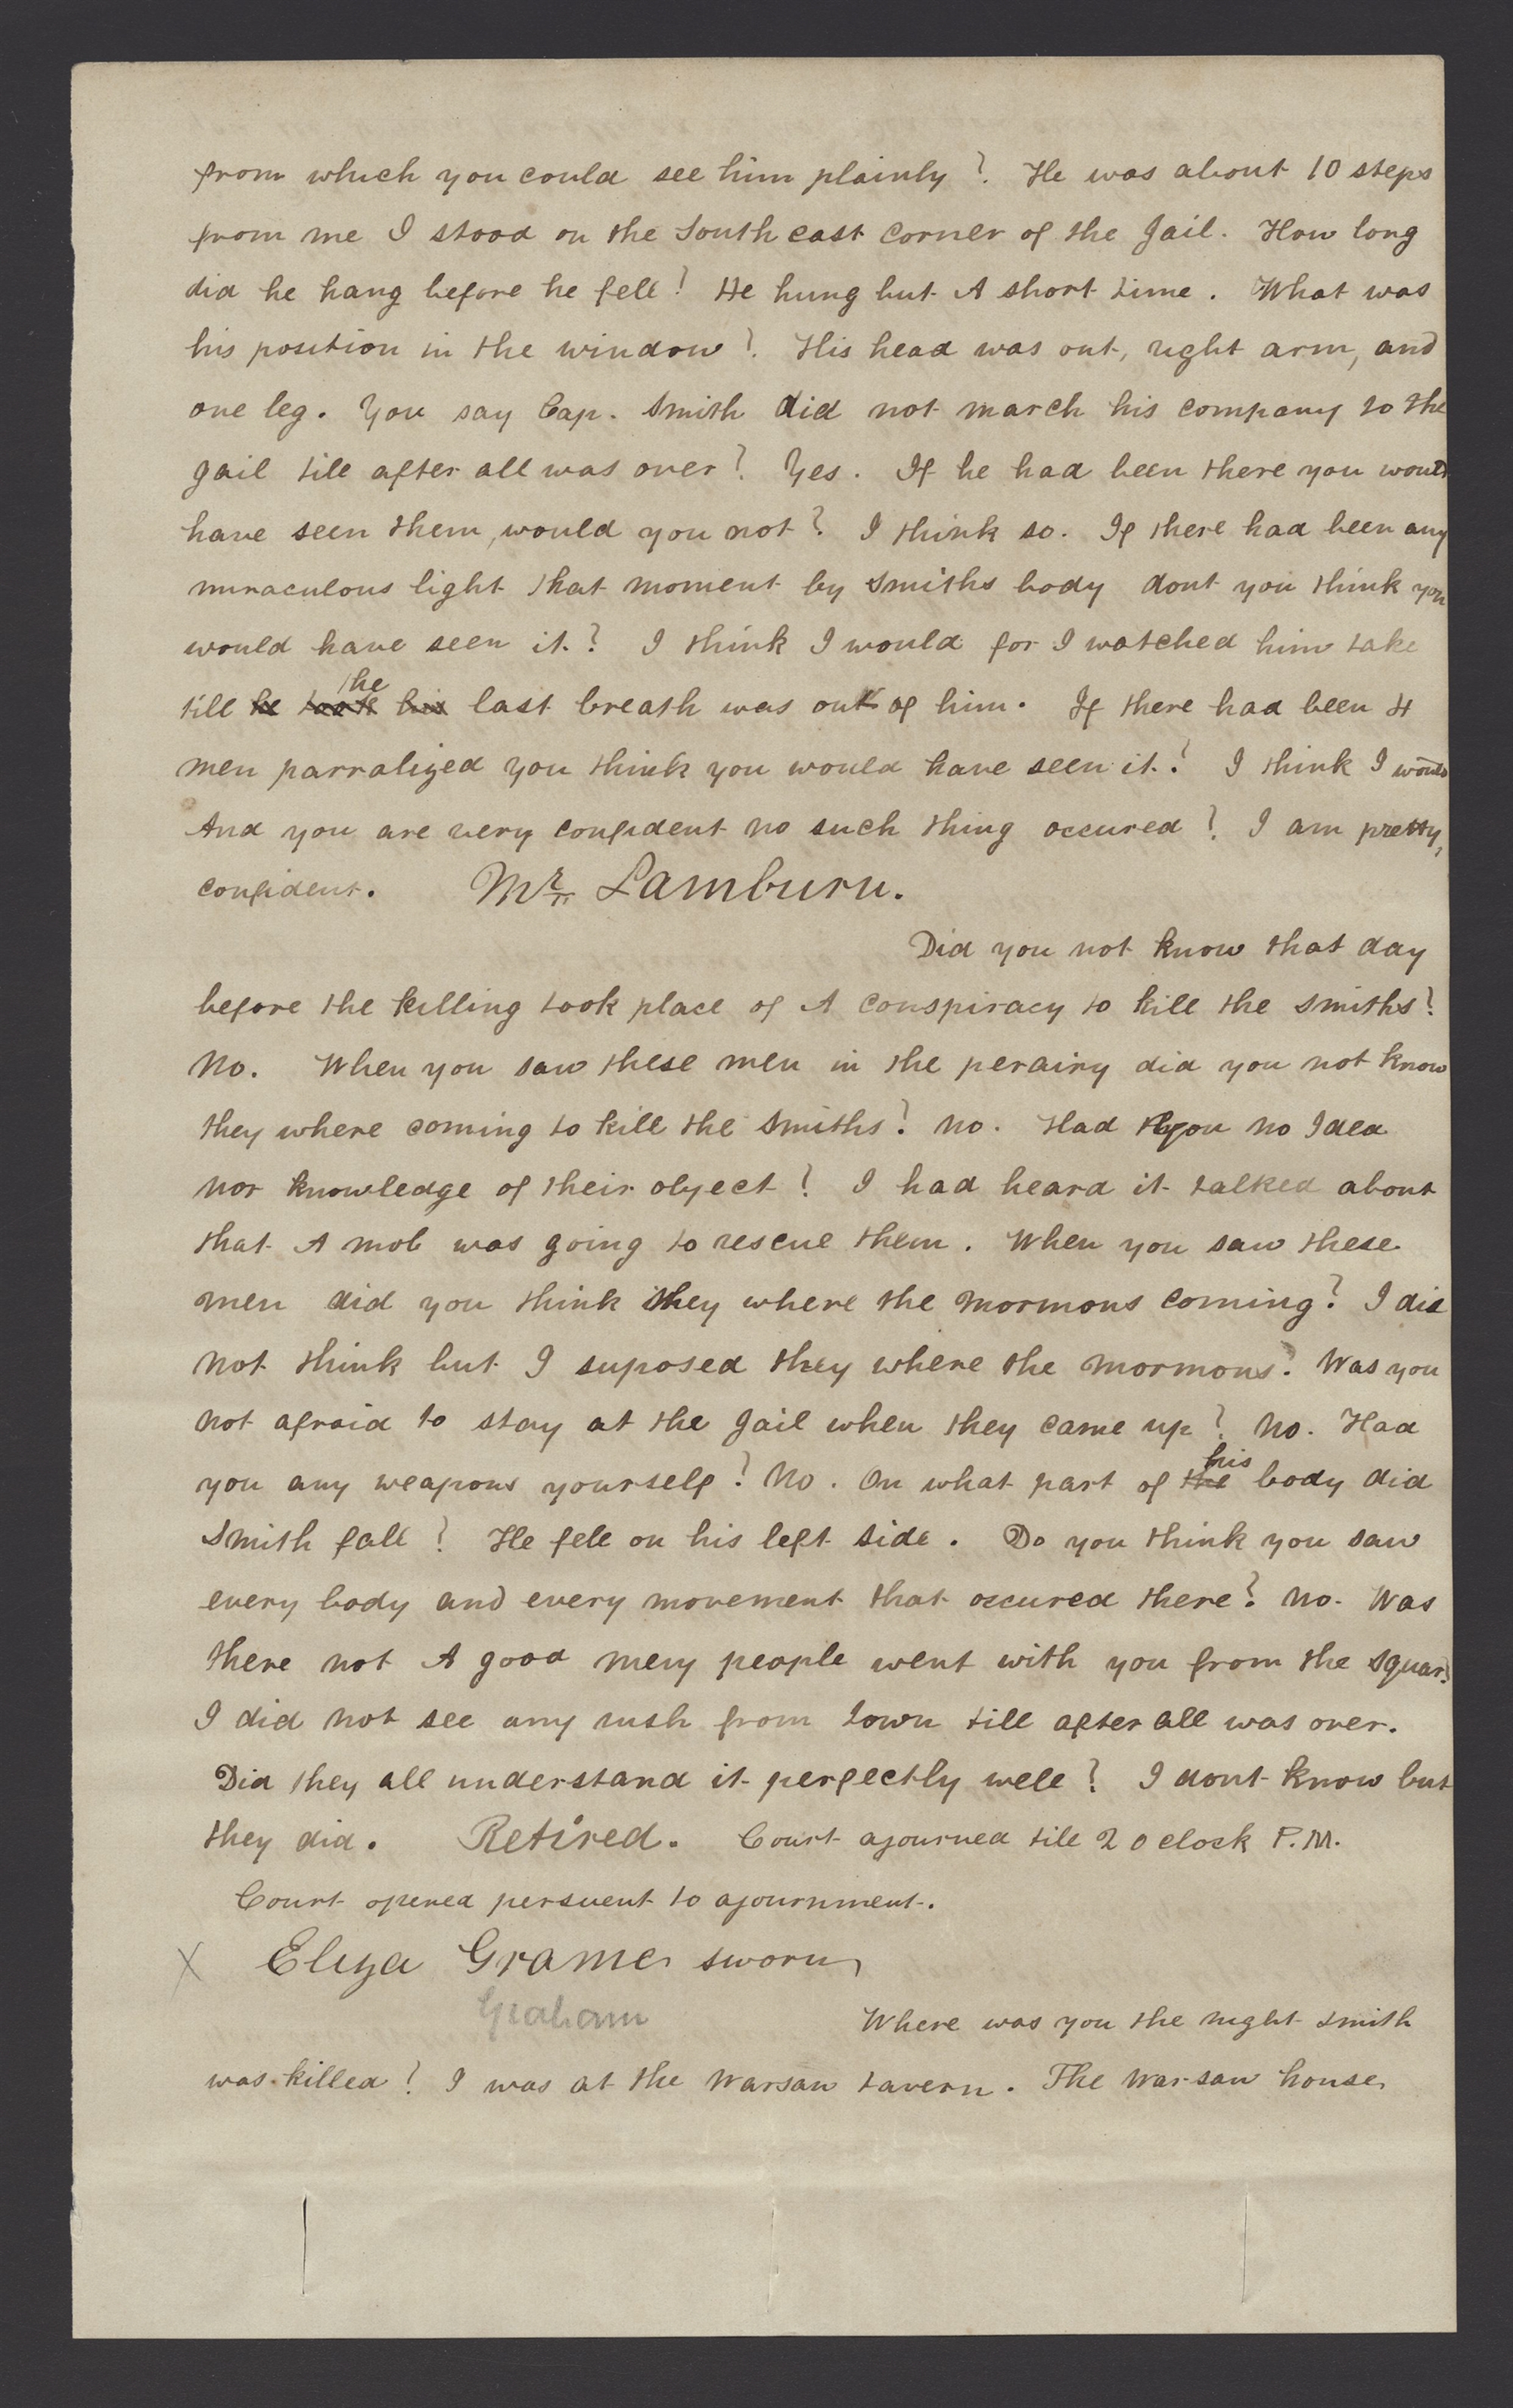 from which you could see him plainly? He was about 10 steps
from me I stood on the South east corner of the Jail. How long
did he hang before he fell? He hung but A short time. What was
his position in the window? His head was out, right arm, and
one leg. You say Cap. Smith did not march his company to the
gail till after all was over? Yes. If he had been there you would
have seen them, would you not? I think so. If there had been any
miraculous light that moment by Smiths body dont you think you
would have seen it? I think I would for I watched him take
the
till he took his last breath was out of him. If there had been 4
men parralized you think you would have seen it? I think I would
And you are very confident no such thing occured? I am pretty,
confident. Mr. Lamburn.
Did you not know that day
before the killing took place of A conspiracy to kill the smiths?
No. When you saw these men in the perairy did you not know
they where coming to kill the Smiths? no. Had you no Idea
nor knowledge of their object? I had heard it talked about
that A mob was going to rescue them. When you saw these
men did you think they where the mormons coming? I did
not think but I suposed they where the mormons? Was you
not afraid to stay at the Jail when they came up? no. Had
his
you any weapons yourself? No. On what part of the body did
Smith fall? He fell on his left side. Do you think you saw
every body and every movement that occured there? no. Was
there not A good meny people went with you from the squar?
I did not see any rush from town till after all was over.
Did they all understand it perfectly well? I dont know but
they did. Retired. Court ajourned till 2 o clock P.M.
Court opened persuent to ajournment.
X Eliza Grame sworn
Graham
Where was you the night smith
was killed? I was at the Warsaw tavern. The Warsaw house